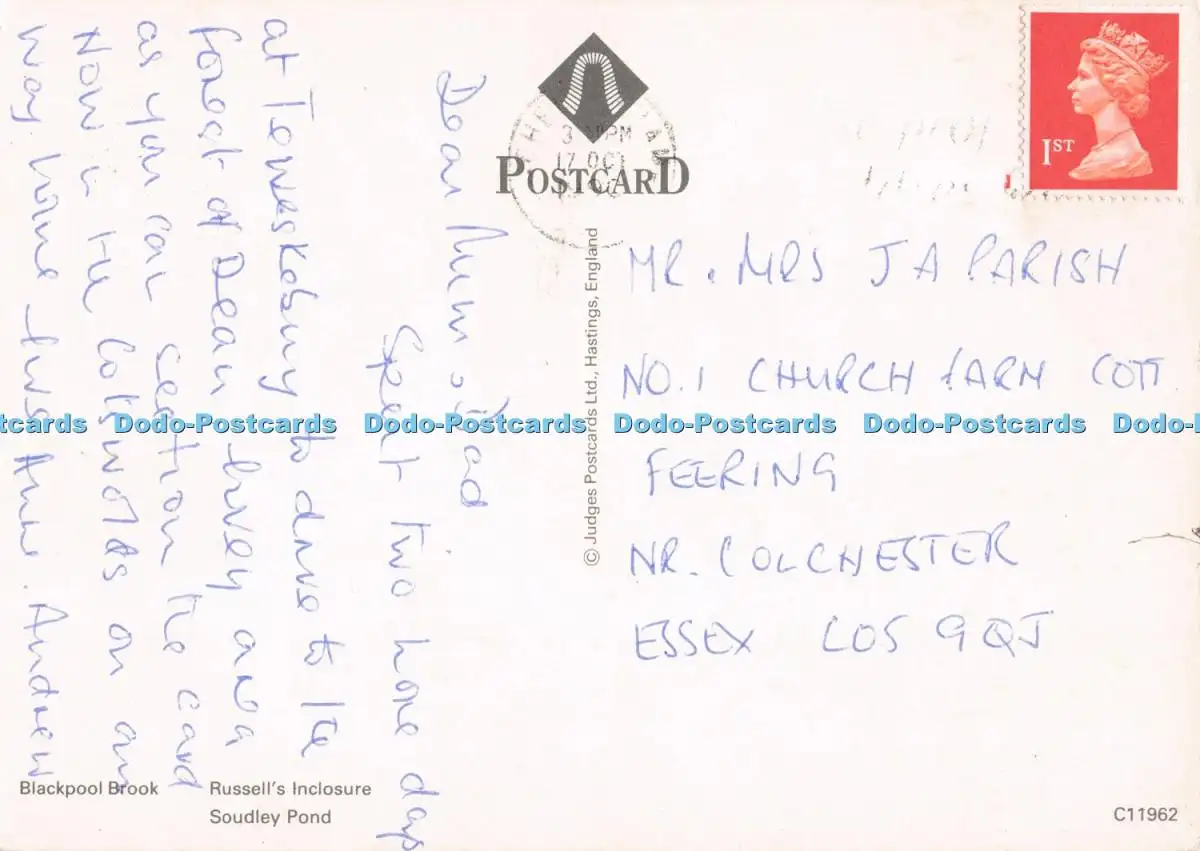 Dear Mum & Dad
Spent two here days
at Tewkesbury to drive to the
Forest of Dean lovely area
as you can see from the card
Now in the Cotswolds on our
way home. Love Anne. Andrew
POSTCARD
3 PM
17 OCT
© Judges Postcards Ltd., Hastings, England
1ST
MR. MRS J A PARISH
NO. 1 CHURCH FARM COTT
FEERING
NR. COLCHESTER
ESSEX CO5 9QJ
Dodo-Postcards Dodo-Postcards Dodo-Postcards Dodo-Postcards
Blackpool Brook
Russell's Inclosure
Soudley Pond
C11962